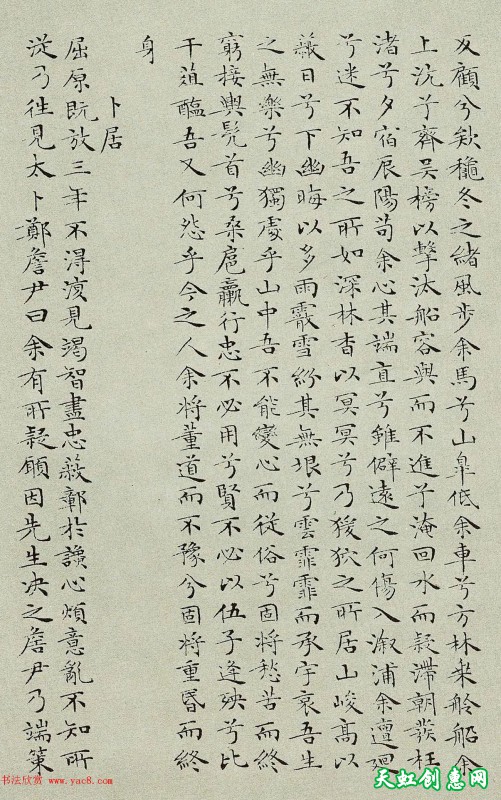 反顧兮欸穐冬之緒風步余馬兮山皐低余車兮方林椉舲船余
上沅兮齊吳榜以擊汰船容與而不進兮淹回水而疑滯朝發枉
渚兮夕宿辰陽苟余心其端直兮雖僻遠之何傷入漵浦余邅迴
兮迷不知吾之所如深林杳以冥冥兮乃猨狖之所居山峻高以
蔽日兮下幽晦以多雨霰雪紛其無垠兮雲霏霏而承宇哀吾生
之無樂兮幽獨處乎山中吾不能變心而從俗兮固將愁苦而終
窮接輿髡首兮桑扈臝行忠不必用兮賢不必以伍子逢殃兮比
干葅醢吾又何怨乎今之人余將董道而不豫兮固將重昏而終
身
卜居
屈原既放三年不得復見竭智盡忠蔽鄣於讒心煩意亂不知所
從乃往見太卜鄭詹尹曰余有所疑願因先生决之詹尹乃端策
书法欣赏 www.yac8.com
天虹创惠网